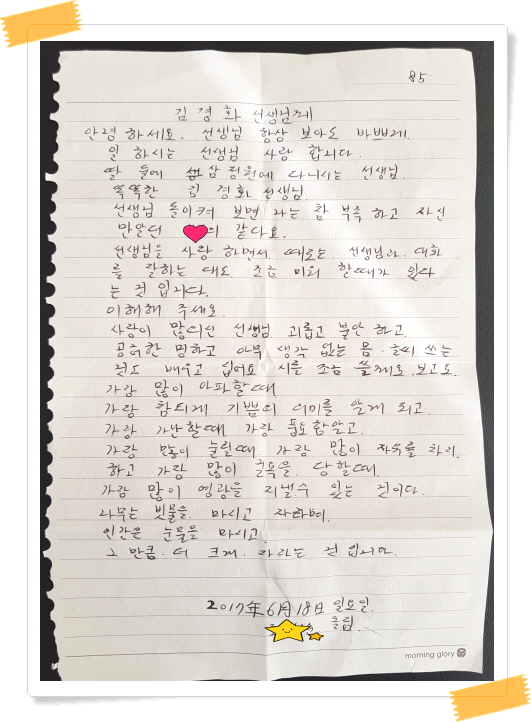 85
김경화 선생님께
안녕하세요. 선생님 항상 보아도 바쁘게.
일 하시는 선생님 사랑 합니다.
딸 둘에 삼림원에 다니시는 선생님
똑똑한 김경화 선생님.
선생님 돌이켜 보면 나는 참 부족 하고 자신
만알던 의 같다요.
선생님을 사랑 하면서 때로는. 선생님과. 대화
를 잘하는 대도 조금 미워 할때가 있다
는 것 입니다.
이해해 주세요.
사랑이 많으신 선생님 괴롭고 불안 하고.
공허한 멍하고 아무 생각 없는 몸. 글씨 쓰는
것도 배우고 십어요 시를 조금 쓸께요 보고도.
가랑 많이 아파할때
가랑 참되게 기쁨의 의미를 알게 되고.
가랑 가난할때 가랑 풍요함알고.
가랑 많이 눌릴때. 가랑 많이 자유를 차리.
하고 가랑 많이 굴욕을. 당할때.
가랑 많이 영광을 지낼수 있는 것이다.
나무는 빗물을 마시고 자라며.
인간은 눈물을 마시고.
그 만큼. 더 크게. 자라는 것 입니다.
2017年6月18日 일요일.
올림.
morning glory